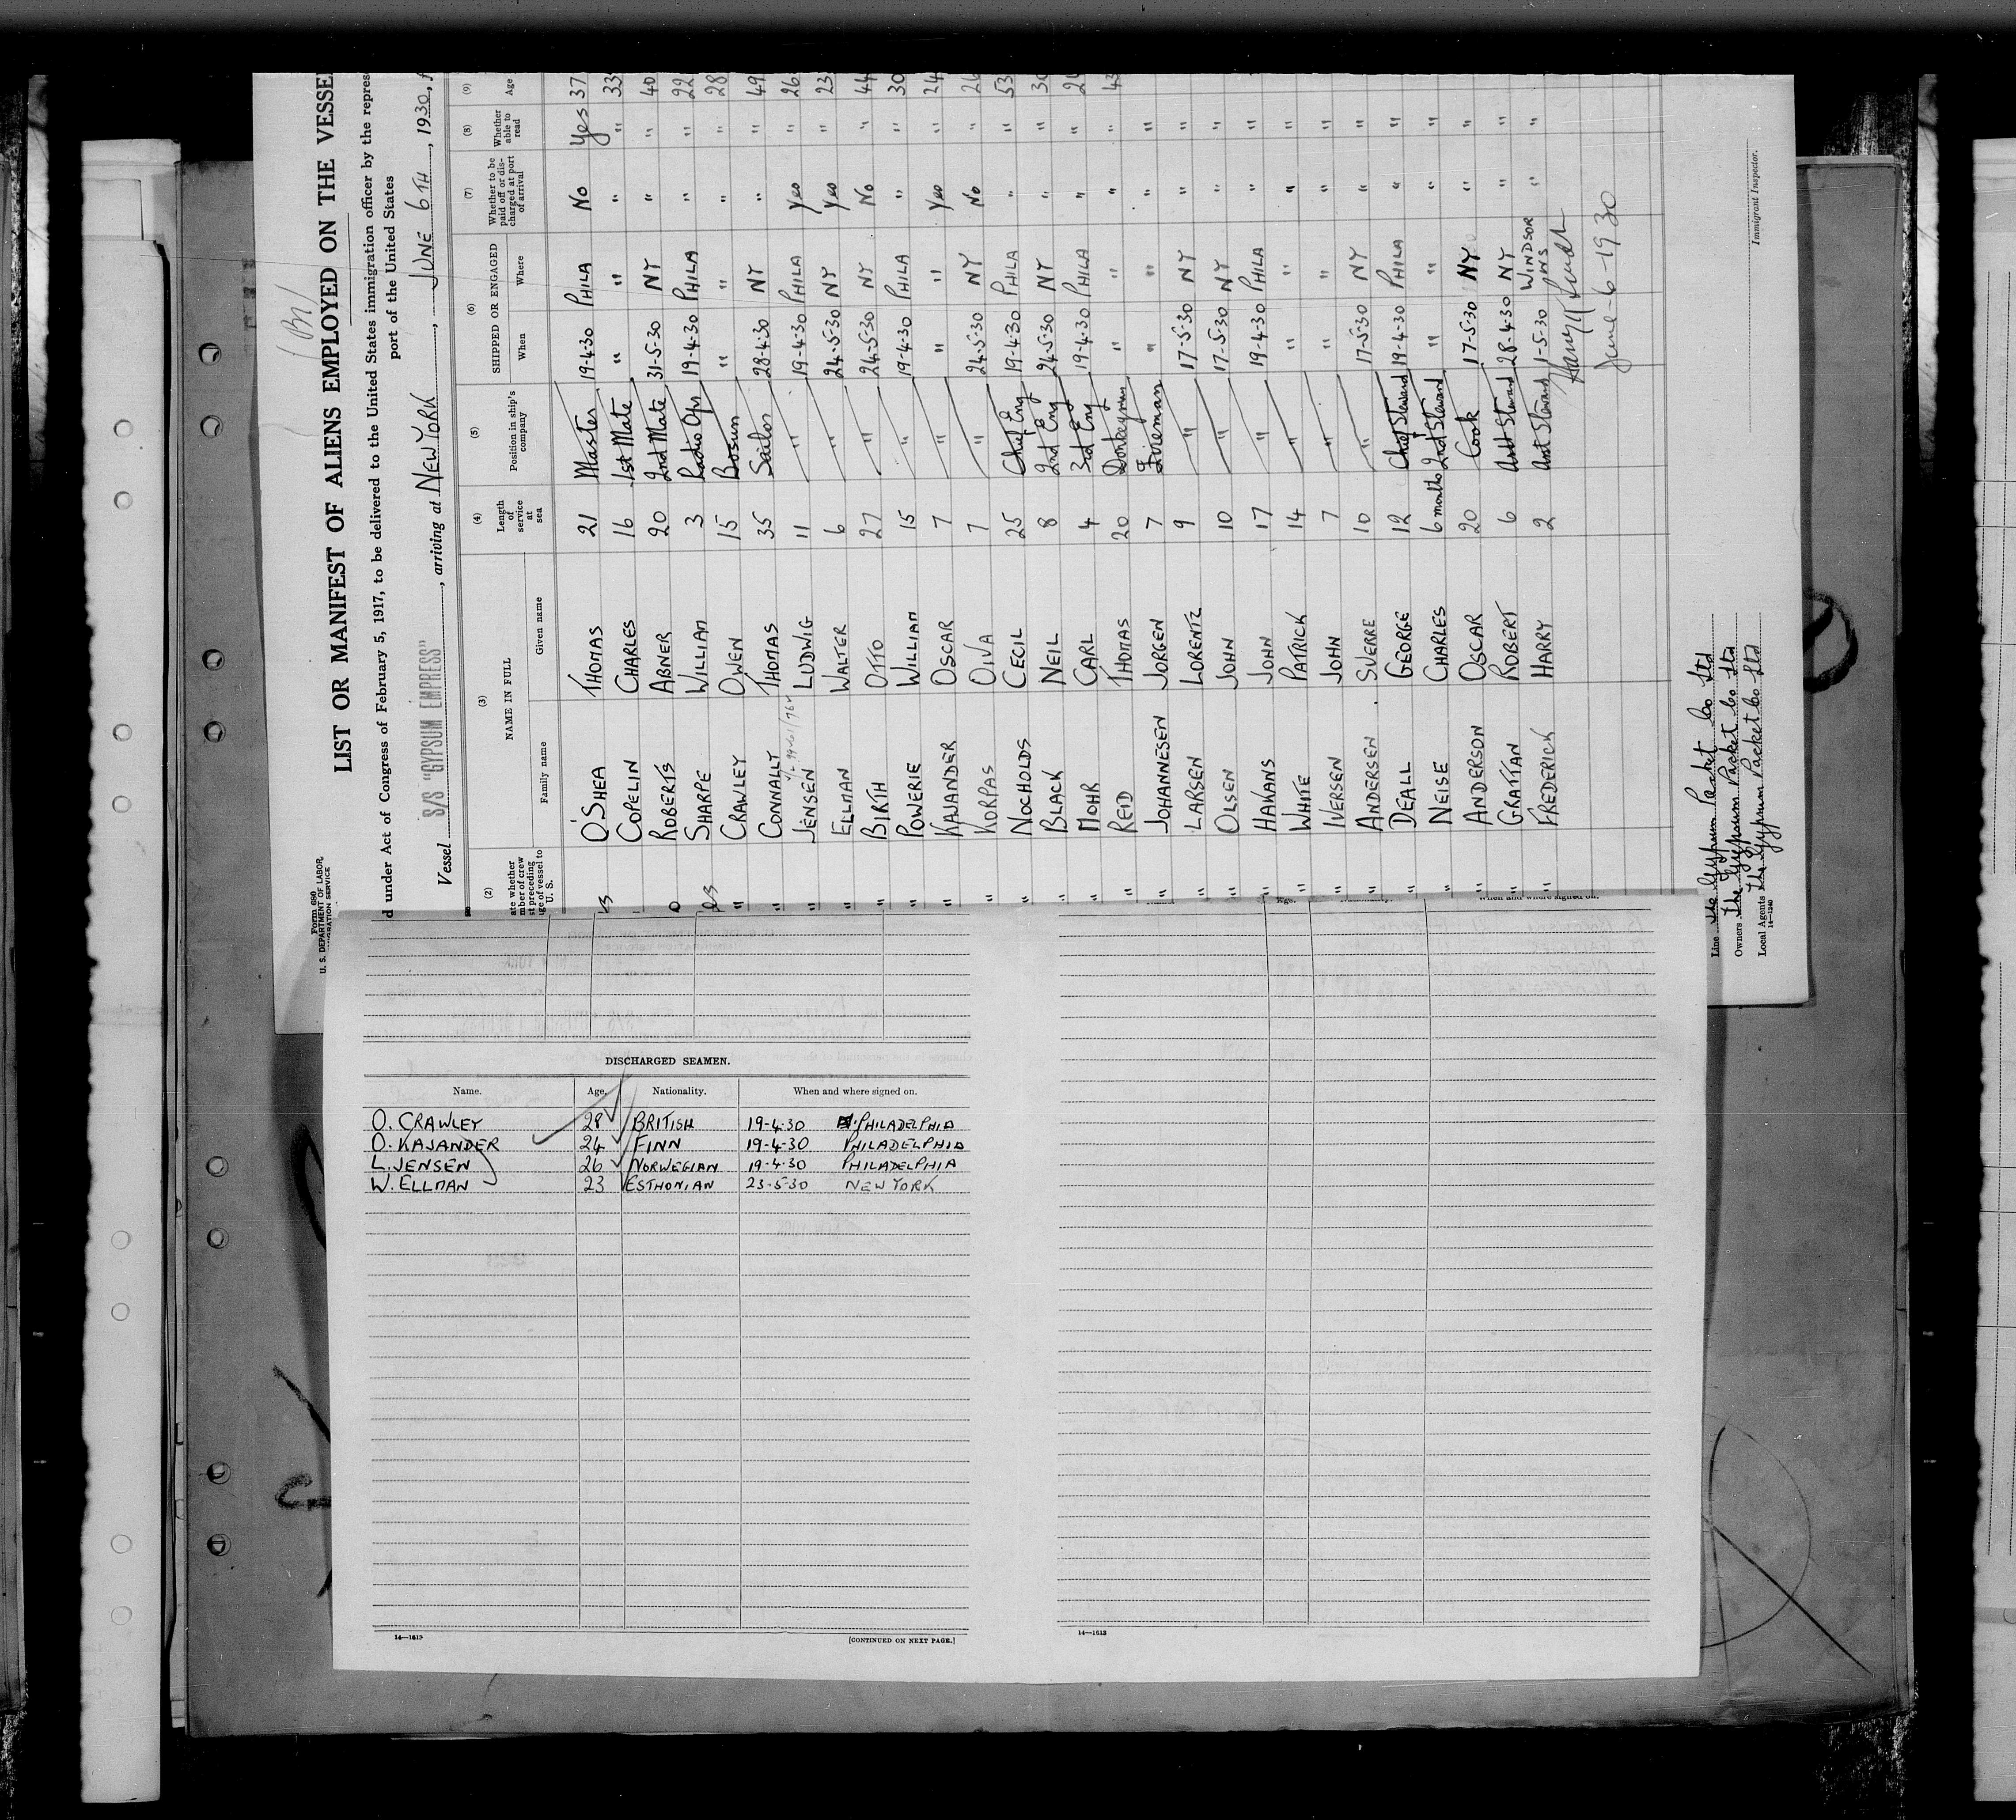 Form 680
U. S. DEPARTMENT OF LABOR
IMMIGRATION SERVICE
LIST OR MANIFEST OF ALIENS EMPLOYED ON THE VESSEL
d under Act of Congress of February 5, 1917, to be delivered to the United States immigration officer by the repres
port of the United States
Vessel S/S "GYPSUM EMPRESS", arriving at NEW YORK, JUNE 6TH, 1930,
(2) (3) (4) (5) (6) (7) (8) (9)
ate whether mber of crew t preceding ge of vessel to U. S. NAME IN FULL Family name Given name Length of service at sea Position in ship's company SHIPPED OR ENGAGED When Where Whether to be paid off or discharged at port of arrival Whether able to read Age
O'SHEA THOMAS 21 Master 19-4-30 PHILA No Yes 37
COPELIN CHARLES 16 1st Mate " " " " 33
ROBERTS ABNER 20 2nd Mate 31-5-30 NY " " 40
SHARPE WILLIAM 3 Radio Opr 19-4-30 PHILA " " 22
" CRAWLEY OWEN 15 Bosun " " " " 28
" CONNALLY THOMAS 35 Sailor 28-4-30 NY " " 49
" JENSEN LUDWIG 11 " 19-4-30 PHILA Yes " 26
" ELLMAN WALTER 6 " 24-5-30 NY Yes " 23
" BIRTH OTTO 27 " 24-5-30 NY No " 44
" POWERIE WILLIAM 15 " 19-4-30 PHILA " " 30
" KAJANDER OSCAR 7 " " " Yes " 24
" KORPAS OIVA 7 " 24-5-30 NY No " 26
" NOCHOLDS CECIL 25 Chief Eng 19-4-30 PHILA " " 53
" BLACK NEIL 8 2nd Eng 24-5-30 NY " " 30
" MOHR CARL 4 3rd Eng 19-4-30 PHILA " "
" REID THOMAS 20 Donkeyman " " " " 43
" JOHANNESEN JORGEN 7 Fireman " " " "
" LARSEN LORENTZ 9 " 17-5-30 NY " "
" OLSEN JOHN 10 " 17-5-30 NY " "
" HAKANS JOHN 17 " 19-4-30 PHILA " "
" WHITE PATRICK 14 " " " " "
" IVERSEN JOHN 7 " " " " "
" ANDERSEN SVERRE 10 " 17-5-30 NY " "
" DEALL GEORGE 12 Chief Steward 19-4-30 PHILA " "
" NEISE CHARLES 6 months 2nd Steward " " " "
" ANDERSON OSCAR 20 Cook 17-5-30 NY " "
" GRATTAN ROBERT 6 Asst Steward 28-4-30 NY " "
" FREDERICK HARRY 2 Asst Steward 1-5-30 WINDSOR NS " "
June-6-1930
Line The Gypsum Packet Co Ltd
Owners The Gypsum Packet Co Ltd
Local Agents The Gypsum Packet Co Ltd
14-1240
Immigrant Inspector.
When and where signed on.
DISCHARGED SEAMEN.
Name. Age. Nationality. When and where signed on.
O. CRAWLEY 28 BRITISH 19-4-30 PHILADELPHIA
O. KAJANDER 24 FINN 19-4-30 PHILADELPHIA
L. JENSEN 26 NORWEGIAN 19-4-30 PHILADELPHIA
W. ELLMAN 23 ESTHONIAN 23-5-30 NEW YORK
14—1613
[CONTINUED ON NEXT PAGE.]
14—1613